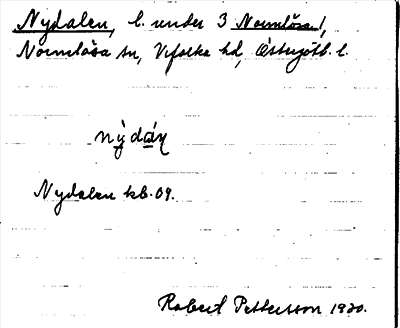 Nydalen, l. under 3 Normlösa /,
Normlösa sn, Vifolka hd, Östergötl. l.
nỳdáṇ
Nydalen kb. 09.
Robert Pettersson 1930.